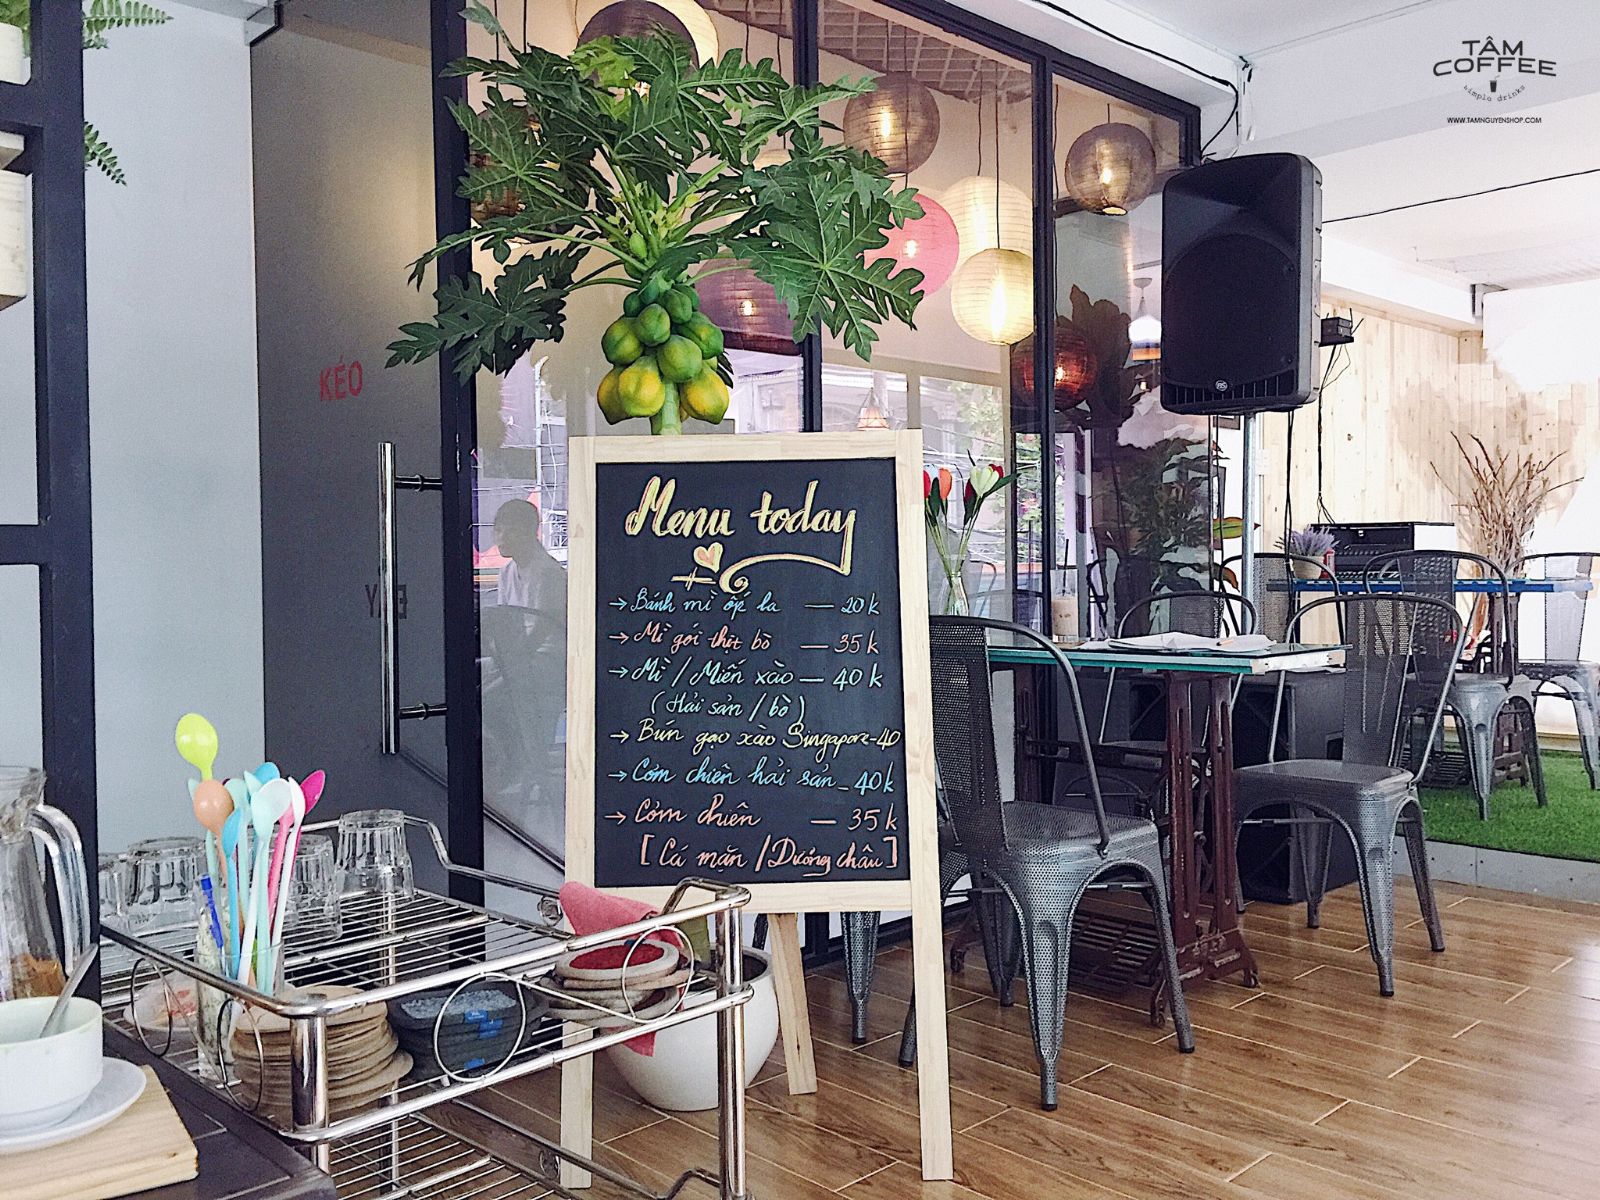 TÂM
COFFEE
simple drinks
WWW.TAMNGUYENSHOP.COM
KÉO
Menu today
→ Bánh mì ốp la — 20k
→ Mì gói thịt bò — 35k
→ Mì / Miến xào — 40k
(Hải sản / bò)
→ Bún gạo xào Singapore - 40
→ Cơm chiên hải sản - 40k
→ Cơm chiên — 35k
[Cá mặn / Dương châu]